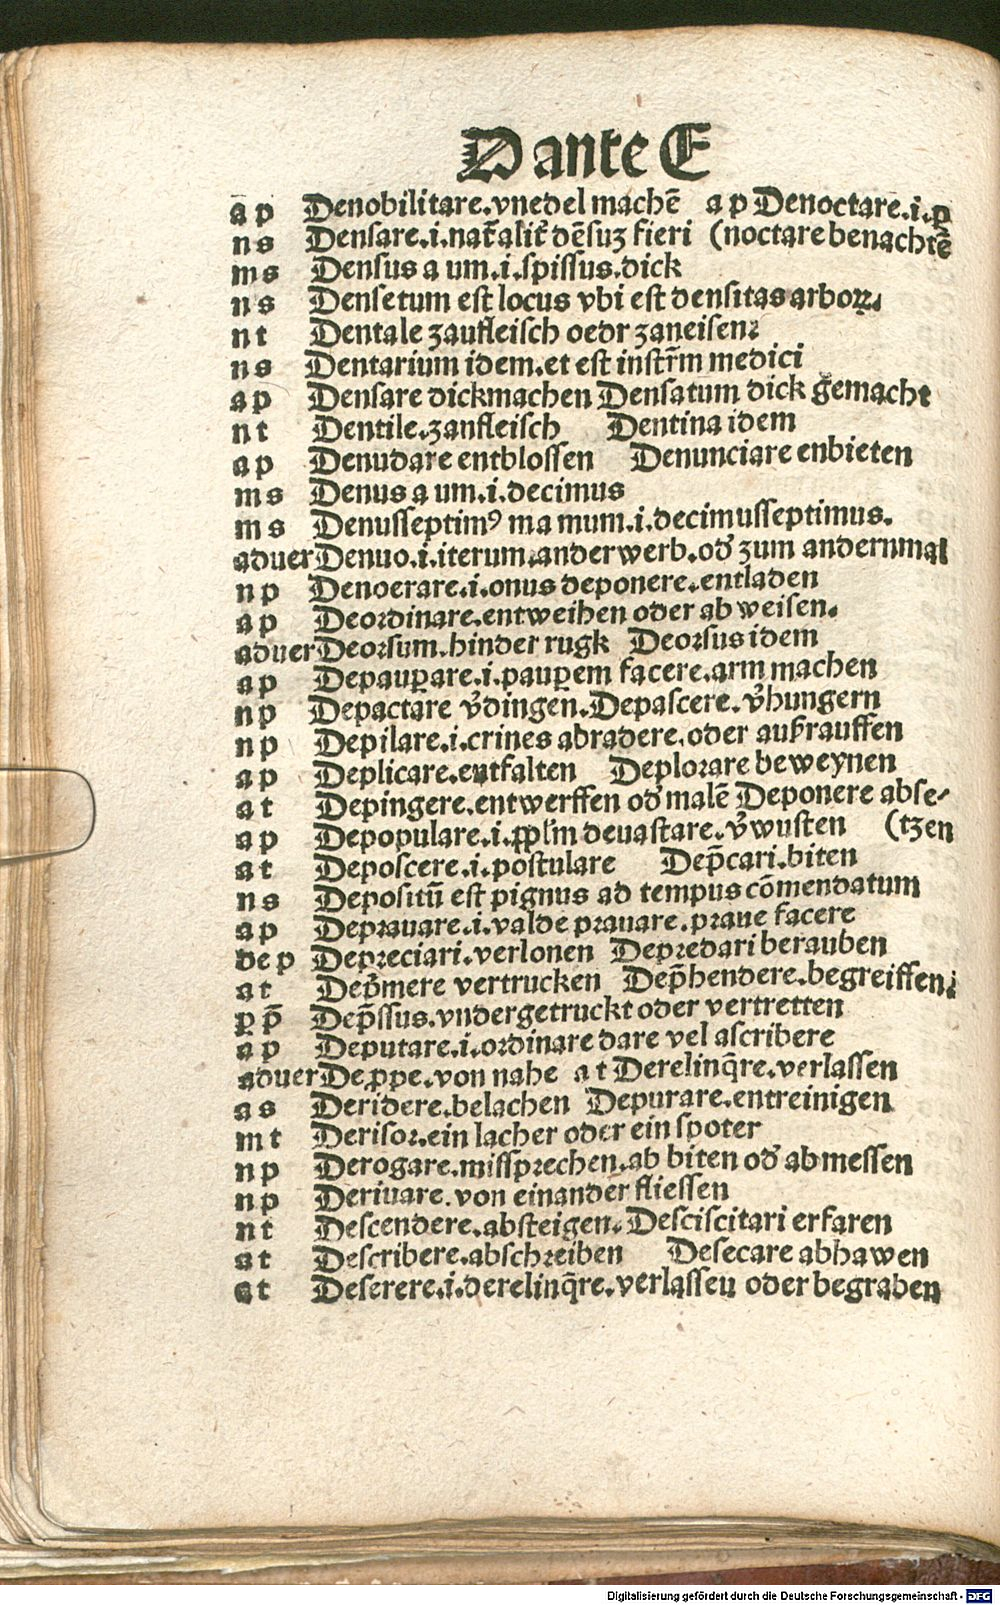 D ante E
a p Denobilitare.vnedel machē a p Denoctare.i.ꝑ
n s Densare.i.nat̄alit̉ dēsuȝ fieri (noctare benachtē
m s Densus a um.i.spissus.dick
n s Densetum est locus vbi est densitas arborꝝ.
n t Dentale zaufleisch oedr zaneisen.
n s Dentarium idem.et est instr̄m medici
a p Densare dickmachen Densatum dick gemacht
n t Dentile.zanfleisch Dentina idem
a p Denudare entblossen Denunciare enbieten
m s Denus a um.i.decimus
m s Denusseptimꝰ ma mum.i.decimusseptimus.
aduer Denuo.i.iterum.anderwerb.od̉ zum andernmal
n p Denoerare.i.onus deponere.entladen
a p Deordinare.entweihen oder ab weisen.
aduer Deorsum.hinder rugk Deorsus idem
a p Depauꝑare.i.pauꝑem facere.arm machen
n p Depactare v̉dingen.Depascere.v̉hungern
n p Depilare.i.crines abradere.oder außrauffen
a p Deplicare.entfalten Deplorare beweynen
a t Depingere.entwerffen od̉ malē Deponere abse-
a p Depopulare.i.ꝓplm̄ deuastare.v̉wusten (tzen
a t Deposcere.i.postulare Dep̄cari.biten
n s Depositū est pignus ad tempus cōmendatum
a p Deprauare.i.valde prauare.praue facere
de p Depreciari.verlonen Depredari berauben
a t Dep̉mere vertrucken Dep̄hendere.begreiffen.
ꝑ p̄ Dep̄ssus.vndergetruckt oder vertretten
a p Deputare.i.ordinare dare vel ascribere
aduer De ꝓpe.von nahe a t Derelinq̄re.verlassen
a s Deridere.belachen Depurare.entreinigen
m t Derisor.ein lacher oder ein spoter
n p Derogare.missprechen.ab biten od̉ abmessen
n p Deriuare.von einander fliessen
n t Descendere.absteigen.Desciscitari erfaren
a t Describere.abschreiben Desecare abhawen
a t Deserere.i.derelinq̄re.verlasseu oder begraben
Digitalisierung gefördert durch die Deutsche Forschungsgemeinschaft - DFG